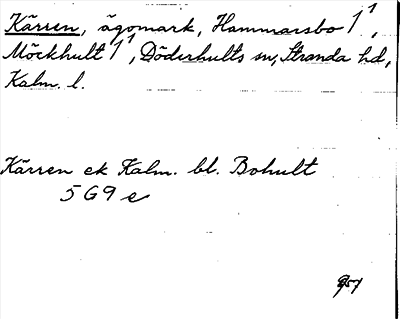 Kärren, ägomark, Hammarsbo 1¹,
Möckhult 1¹, Döderhults sn, Stranda hd,
Kalm. l.
Kärren ek Kalm. bl. Bohult
5 G 9 e